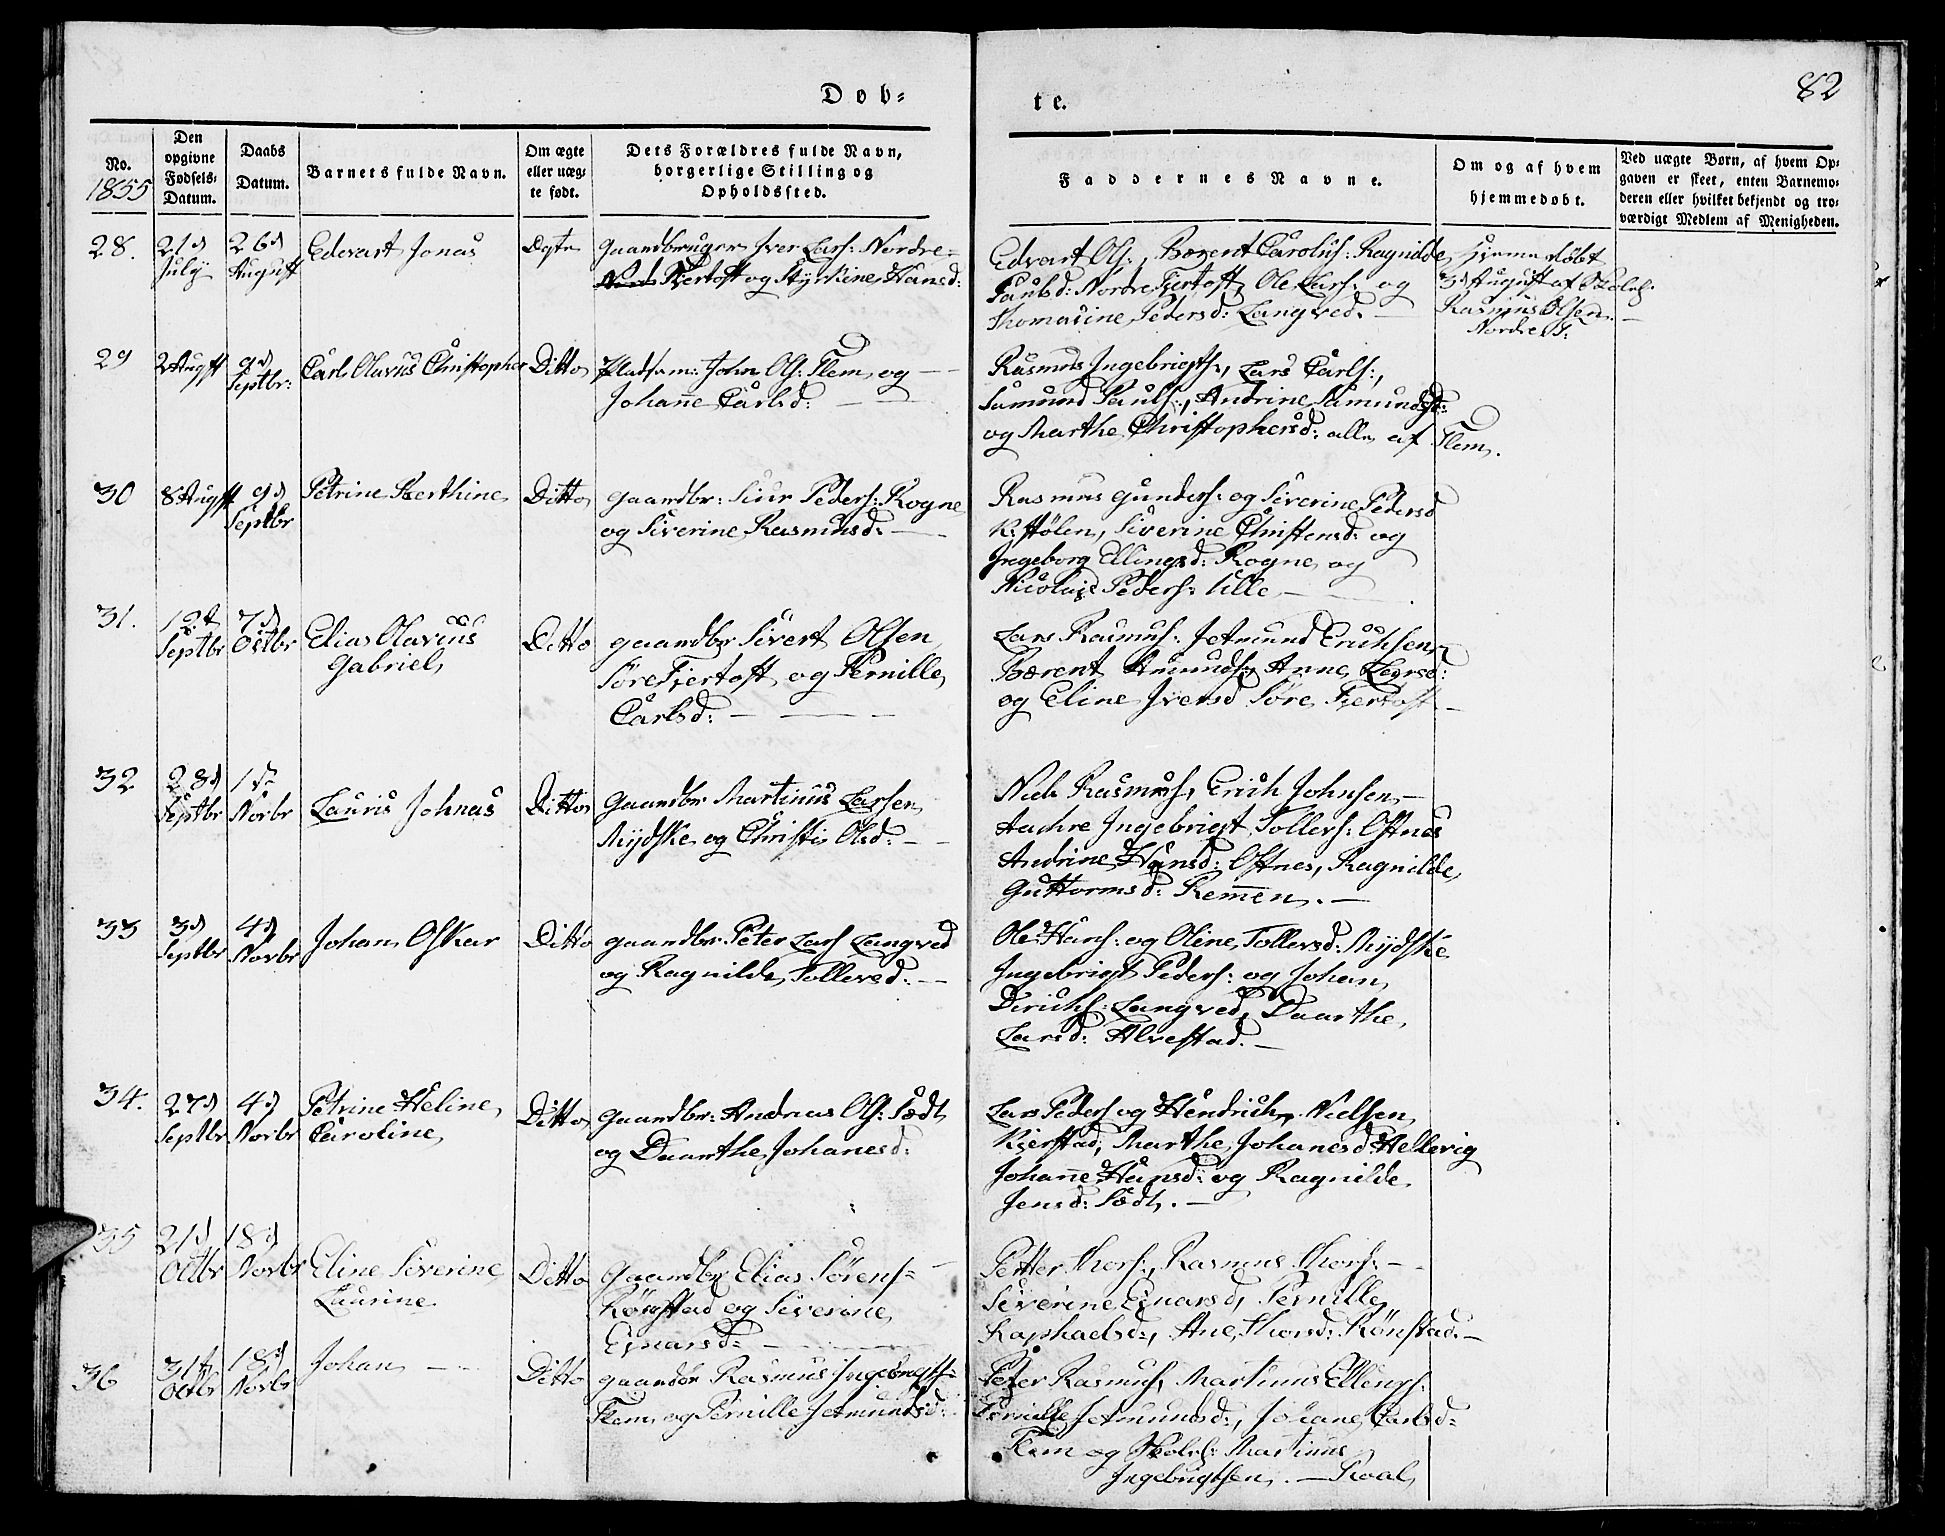 Døb-
te.
82
No.
1855
Den
opgivne
Fødsels-
Datum.
Daabs
Datum.
Barnets fulde Navn.
Om ægte
eller uæg-
te født.
Dets Forældres fulde Navn,
borgerlige Stilling og
Opholdssted.
Faddernes Navne.
Om og af hvem
hjemmedøbt.
Ved uægte Børn, af hvem Op-
gaven er skeet, enten Barnemo-
deren eller hvilket bekjendt og tro-
værdigt Medlem af Menigheden.
28.
21d
July
26d
August
Edvart Jonas
Ægte
Gaardbruger Iver Lars: Nordre-
Fjertoft og Styrkine Hansd:
Edvart Ols:, Bærent Carolus: Ragnilde
Paulsd: Nordre Fjertoft, Ole Lars: og
Thomasine Pedersd: Langved. -
Hjemmedøbt
3d August af Skolel:
Rasmus Olsen -
Nordre F:
29
2 Augst
9d
Septbr:
Carl Olavius Christopher
Ditto
Pladsm: John Ols: Flem og -
Johanne Carlsd: -
Rasmus Ingebrigts:, Lars Carls:,
Samund Pauls:, Andrine Samundsd:
og Marthe Christophersd: alle af Flem.
30
8 Augst
9d
Septbr
Petrine Berthine
Ditto
gaardbr: Siur Peders: Rogne
og Siverine Rasmusd: -
Rasmus Gunders: og Siverine Pedersd
Kistølen, Siverine Christensd: og
Ingeborg Ellingsd: Rogne og
Nicolaie Peders: Ulle -
31.
12t
Septbr
7d
Octbr
Elias Olavius
Gabriel
Ditto
gaardbr Sivert Olsen
Søre Fjertoft og Pernille
Carlsd: -
Lars Rasmus: Jetmund Erichsen,
Bærent Amunds: Anne Larsd:
og Eline Iversd Søre Fjertoft -
32
28d
Septbr
1st
Novbr
Lauris Johnas
Ditto
Gaardbr Martinus Larsen
Mydske og Christi Olsd: -
Niels Rasmus, Erich Johnsen -
Ingebrigt Tollers: Oftnes
Andrine Hansd: Oftnes, Ragnilde
Guttormsd: Remmen. -
33
3d
Septbr
4d
Novbr
Johan Oskar
Ditto
gaardbr Peter Lars Langved
og Ragnilde Tollevsd: -
Ole Hans: og Oline Tollevsd: Mydske
Ingebrigt Peders: og Johan
Dirichs: Langved, Daarthe
Larsd: Alvestad. -
34.
27d
Septbr
4d
Novbr
Petrine Heline
Caroline
Ditto
gaardbr: Andreas Ols: Sædt
og Daarthe Johanesd:
Lars Peders og Hendrich Nielsen
Kjerstad, Marthe Johanesd Hellevig
Johanne Hansd: og Ragnilde
Jensd: Sædt. -
35
21d
Octbr
18d
Novbr
Eline Siverine
Laurine
Ditto
Gaardbr Elias Sørens-
Rønstad og Siverine
Einarsd: -
Petter Thors:, Rasmus Thors: -
Siverine Einarsd, Pernille
Raphaelsd:, Ane Thorsd: Rønstad. -
36
31t
Octbr
18d
Novbr
Johan -
Ditto
gaardbr Rasmus Ingebrigts:
Flem og Pernille Jetmundsd:
Peter Rasmus, Martinus Ellings:
Pernille Jetmundsd:, Johane Carlsd:
Flem og Skolel: Martinus
Ingebrigtsen. -